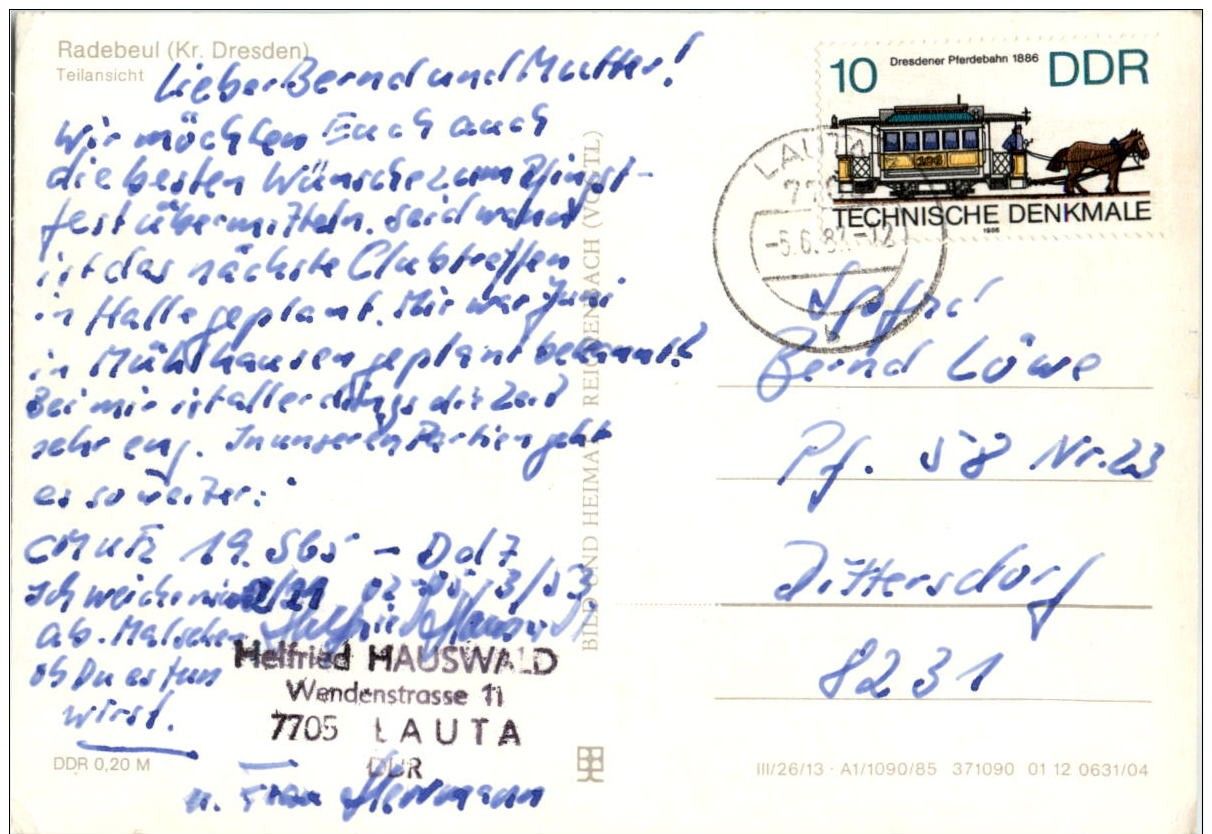 Radebeul (Kr. Dresden)
Teilansicht
Lieber Bernd und Mutter!
Wir möchten Euch auch
die besten Wünsche zum Pfingst-
fest übermitteln. Seid wann
ist das nächste Clubtreffen
in Halle geplant. Mir war Juni
in Mühlhausen geplant bekannt?
Bei mir ist allerdings die Zeit
sehr eng. In unseren Partien geht
es so weiter:
19. Sb5 - Dd7
Ich weiche
ab. Mal sehen
ob Du es tun
wirst.
Helfried HAUSWALD
Wendenstrasse 11
7705 LAUTA
DDR
u. Frau Herrmann
DDR 0,20 M
BILD UND HEIMAT REICHENBACH (VOGTL)
10 Dresdener Pferdebahn 1886 DDR
106
TECHNISCHE DENKMALE
1986
LAUTA
-5.6.87-12
Spfrd
Bernd Löwe
Pf. 58 Nr. 23
Dittersdorf
8231
III/26/13 · A1/1090/85 371090 01 12 0631/04